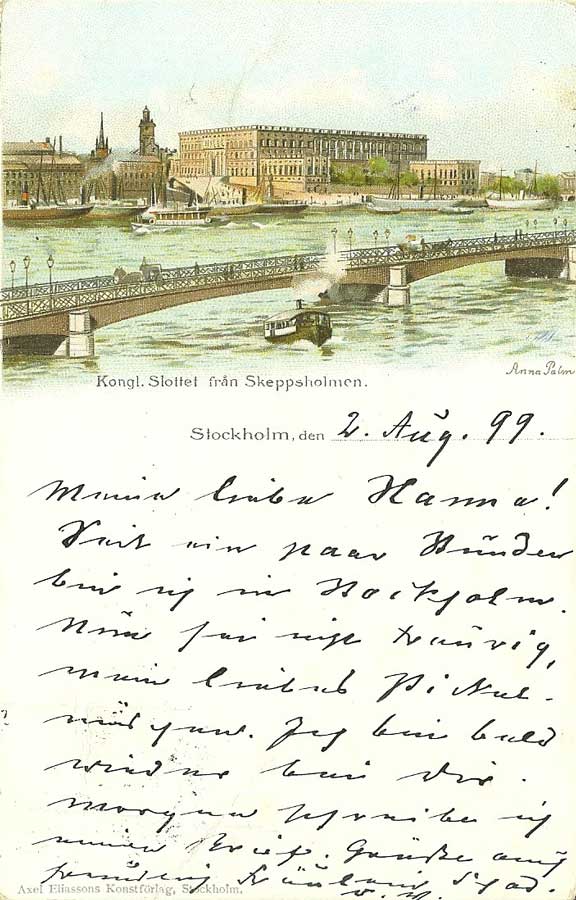 Anna Palm
Kongl. Slottet från Skeppsholmen.
Stockholm, den 2. Aug. 99.
Meine liebe Hanna!
Seit ein paar Stunden
bin ich in Stockholm.
Nun sei nicht traurig,
mein liebes
Ich bin bald
wieder bei Dir.
Morgen schreibe ich
einen Brief. Grüße auch
freundlich Fräulein
Axel Eliassons Konstförlag, Stockholm.